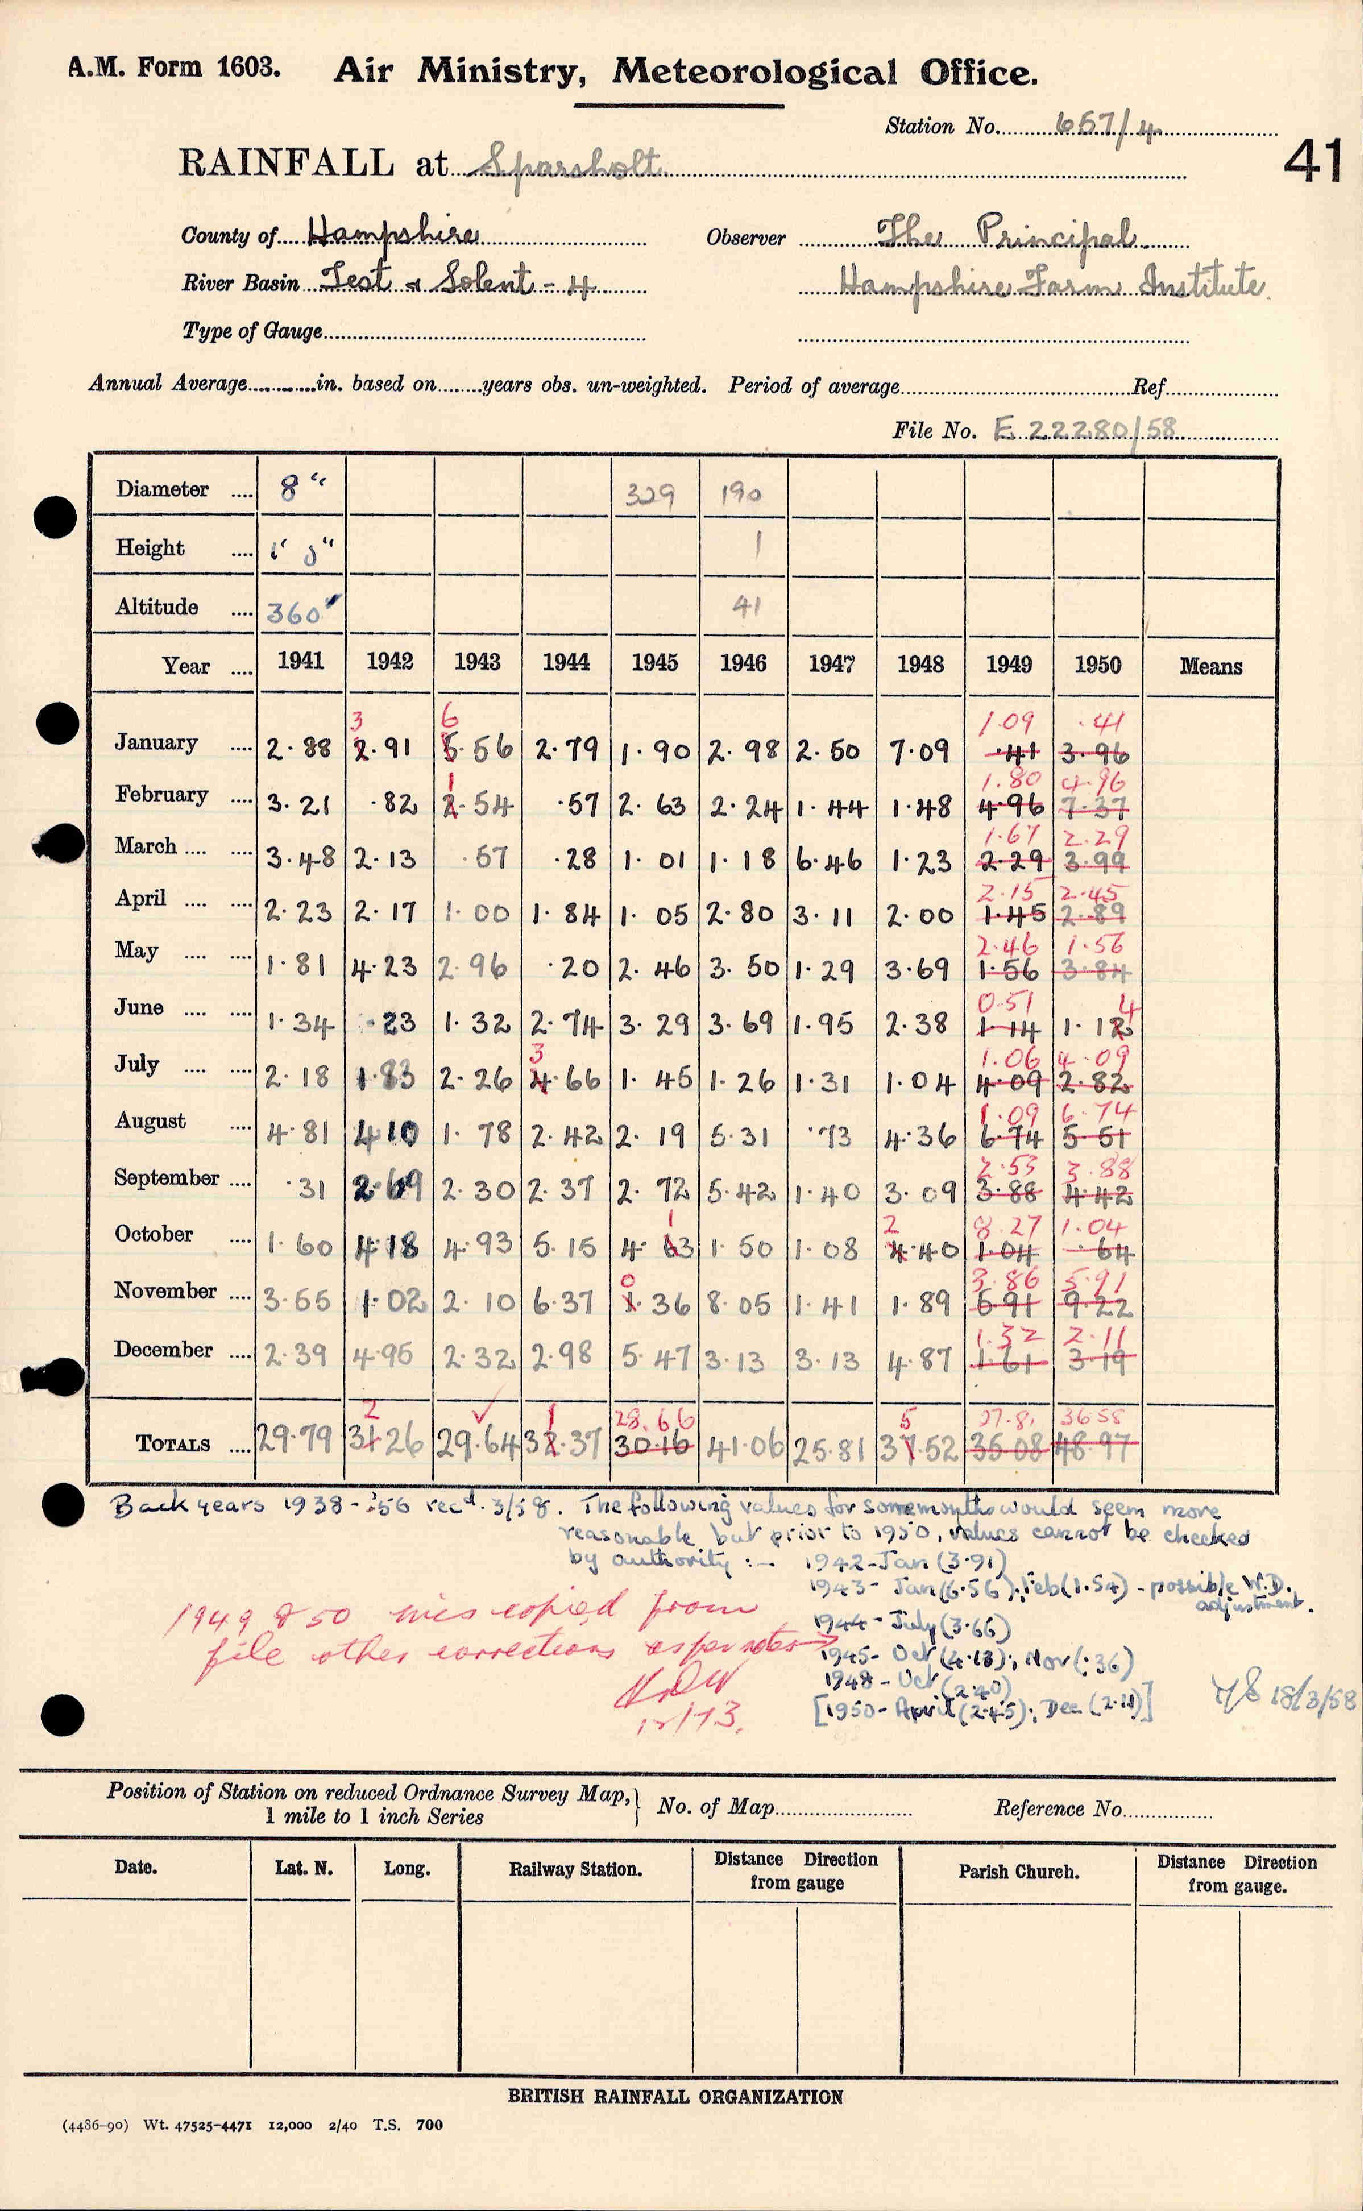 A.M. Form 1603. Air Ministry, Meteorological Office.
Station No. 657/4
41
RAINFALL at Sparsholt
County of Hampshire Observer The Principal
River Basin Test & Solent - 4 Hampshire Farm Institute.
Type of Gauge
Annual Average in. based on years obs. un-weighted. Period of average Ref
File No. E 22280/58
Diameter 8" 329 190
Height 1' 0" 1
Altitude 360' 41
Year 1941 1942 1943 1944 1945 1946 1947 1948 1949 1950 Means
3 6 1.09 .41
January 2.88 2.91 5.56 2.79 1.90 2.98 2.50 7.09 .41 3.96
1 1.80 4.96
February 3.21 .82 2.54 .57 2.63 2.24 1.44 1.48 4.96 7.37
1.67 2.29
March 3.48 2.13 .57 .28 1.01 1.18 6.46 1.23 2.29 3.99
2.15 2.45
April 2.23 2.17 1.00 1.84 1.05 2.80 3.11 2.00 1.45 2.89
2.46 1.56
May 1.81 4.23 2.96 .20 2.46 3.50 1.29 3.69 1.56 3.84
0.51 4
June 1.34 .23 1.32 2.74 3.29 3.69 1.95 2.38 1.14 1.12
3 1.06 4.09
July 2.18 1.83 2.26 4.66 1.45 1.26 1.31 1.04 4.09 2.82
1.09 6.74
August 4.81 4.10 1.78 2.42 2.19 5.31 .73 4.36 6.74 5.51
2.53 3.88
September .31 2.69 2.30 2.37 2.72 5.42 1.40 3.09 3.88 4.42
1 2 8.27 1.04
October 1.60 4.18 4.93 5.15 4.63 1.50 1.08 4.40 1.04 .64
0 3.86 5.91
November 3.55 1.02 2.10 6.37 1.36 8.05 1.41 1.89 5.91 9.22
1.32 2.11
December 2.39 4.95 2.32 2.98 5.47 3.13 3.13 4.87 1.61 3.19
2 ✓ 1 28.66 5 27.81 36.58
TOTALS 29.79 31.26 29.64 32.37 30.16 41.06 25.81 37.52 35.08 48.97
Back years 1938-'56 recd. 3/58. The following values for some months would seem more
reasonable but prior to 1950, values cannot be checked
by authority :- 1942-Jan (3.91)
1943- Jan (6.56); Feb (1.54) - possible W.D. adjustment.
1944- July (3.66)
1945- Oct (4.13); Nov (.36)
1948- Oct (2.40)
[1950- April (2.45); Dec (2.11)] 18/3/58
1949 & 50 mis copied from
file other corrections as per notes →
12/73.
Position of Station on reduced Ordnance Survey Map, 1 mile to 1 inch Series } No. of Map Reference No.
Date. Lat. N. Long. Railway Station. Distance Direction from gauge Parish Church. Distance Direction from gauge.
BRITISH RAINFALL ORGANIZATION
(4486-90) Wt. 47525-4471 12,000 2/40 T.S. 700